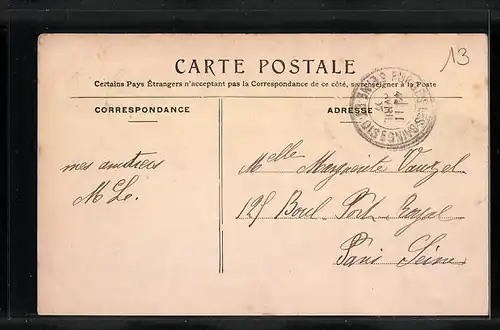 13
CARTE POSTALE
Certains Pays Étrangers n'acceptant pas la Correspondance de ce côté, se renseigner à la Poste
CORRESPONDANCE
ADRESSE
mes amitiés
M Le.
Melle Marguerite Vauzel
125 Boul Port Royal
Paris Seine